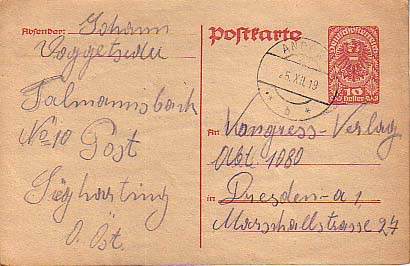 Absender: Johann
Talmannsbach
No 10 Post
Sigharting
O. Öst.
Postkarte
Deutschösterreich
10
Heller
AND
25.XII.19
* b *
An Kongress-Verlag
Abt. 1080
in Dresden-a 1,
Marschallstrasse 27